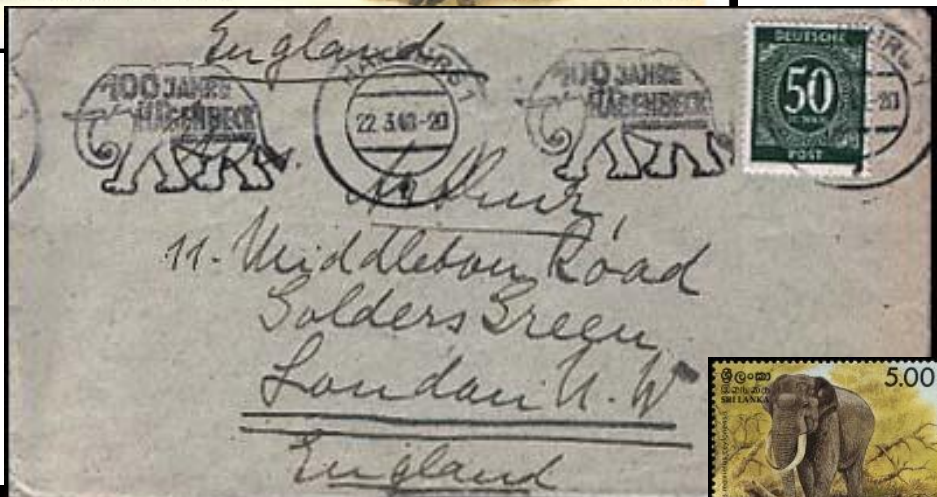 England
100 JAHRE
HAGENBECK
HAMBURG 1
22.3.48-20
100 JAHRE
HAGENBECK
DEUTSCHE
50
POST
-20
Arthur
11. Middleton Road
Golders Green
London N.W
England
ශ්‍රී ලංකා
இலங்கை
SRI LANKA
5.00